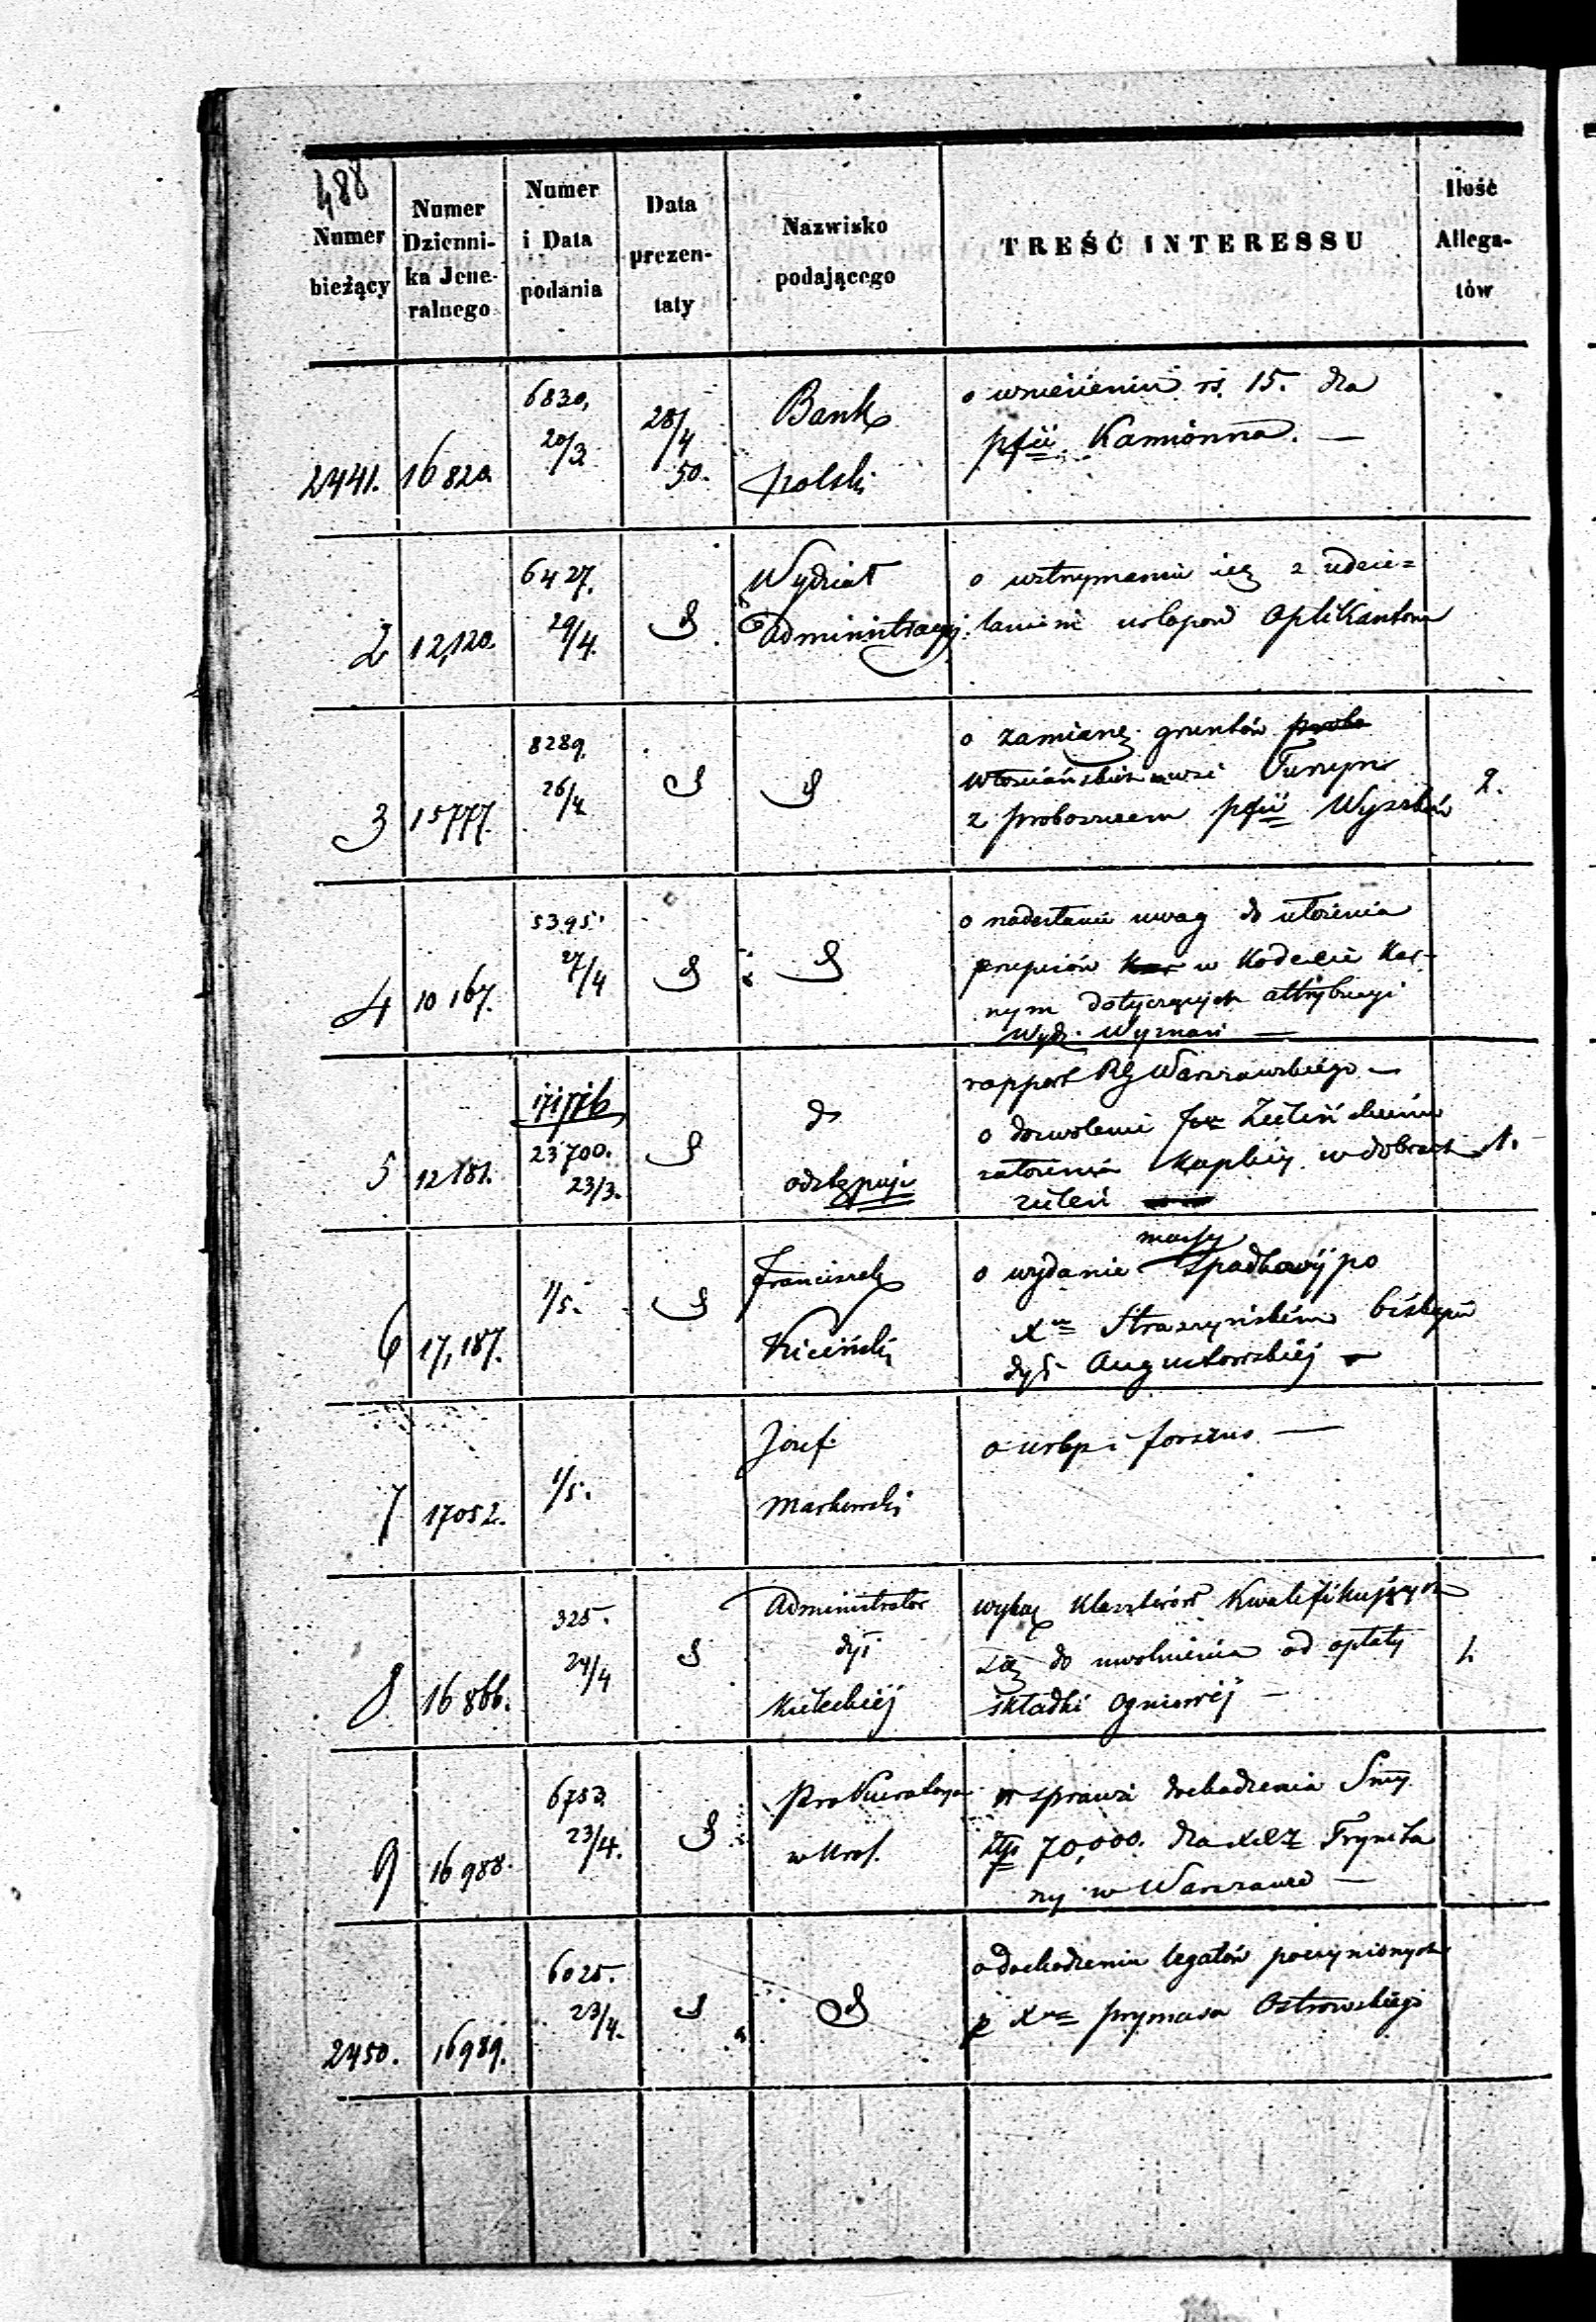 488
Numer bieżący
Numer Dzienni-ka Jene-ralnego
Numer i Data podania
Data prezen-taty
Nazwisko podającego
TREŚĆ INTERESSU
Ilość Allega-tów
2441. 16820. 6830, 20/3 28/4 50. Bank polski
o wniesieniu rs. 15. dla
pfii Kamionna. —
2 12,120. 6427. 29/4. Wydział Administracyj.
o wstrzymaniu się z udzie=
laniem urlopów Aplikantom
3 15777. 8289. 26/4
o zamianę gruntów
włościańskich wsi Turzyn
z proboszczem pfii Wyszków
2.
4 10167. 5395. 27/4
o nadesłanie uwag do ułożenia
przepisów w Kodexie Kar-
nym dotyczących attrybucyi
Wydz. Wyznań —
5 12181. 23700. 23/3. do odstępuje
rapport RG Warszawskiego —
o dozwolenie
założenia Kaplicy w dobrach
1.
6 17,187. 1/5. Franciszek Kiciński
o wydanie massy spadkowéj po
Xdzu Straszyńskim biskupie
dyi Augustowskiéj —
7 17052. 1/5. Józef Markowski
o urlop i forszus —
8 16866. 325. 24/4 Administrator dyi Kieleckiéj
wykaz Klasztorów Kwalifikujących
się do uwolnienia od opłaty
składki Ogniowéj —
1.
9 16988. 6753. 23/4. Prokuratorya w Krol.
w sprawie dochodzenia Smy
złp 70,000. dla XX Trynita
rzy w Warszawie —
2450. 16989. 6025. 23/4.
o dochodzeniu legatów poczynionych
p Xdza prymasa Ostrowskiego